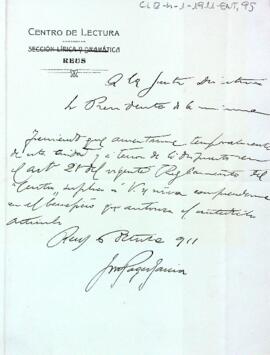 C.L.B-h-1-1911-ENT, 95
CENTRO DE LECTURA
SECCIÓN LÍRICA Y DRAMÁTICA
REUS
A la Junta Directiva
Presidente de la misma
Teniendo que ausentarme temporalmente
de esta ciudad y a tenor de lo dispuesto en
el art 21 del vigente Reglamento del
"Centro", suplica á V. se sirva comprenderme
en el beneficio que autoriza el antedicho
artículo
Reus 6 Octubre 911